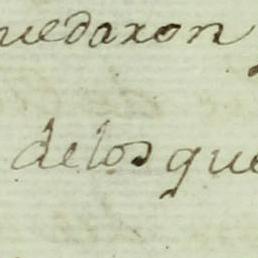 uedaron
delos que